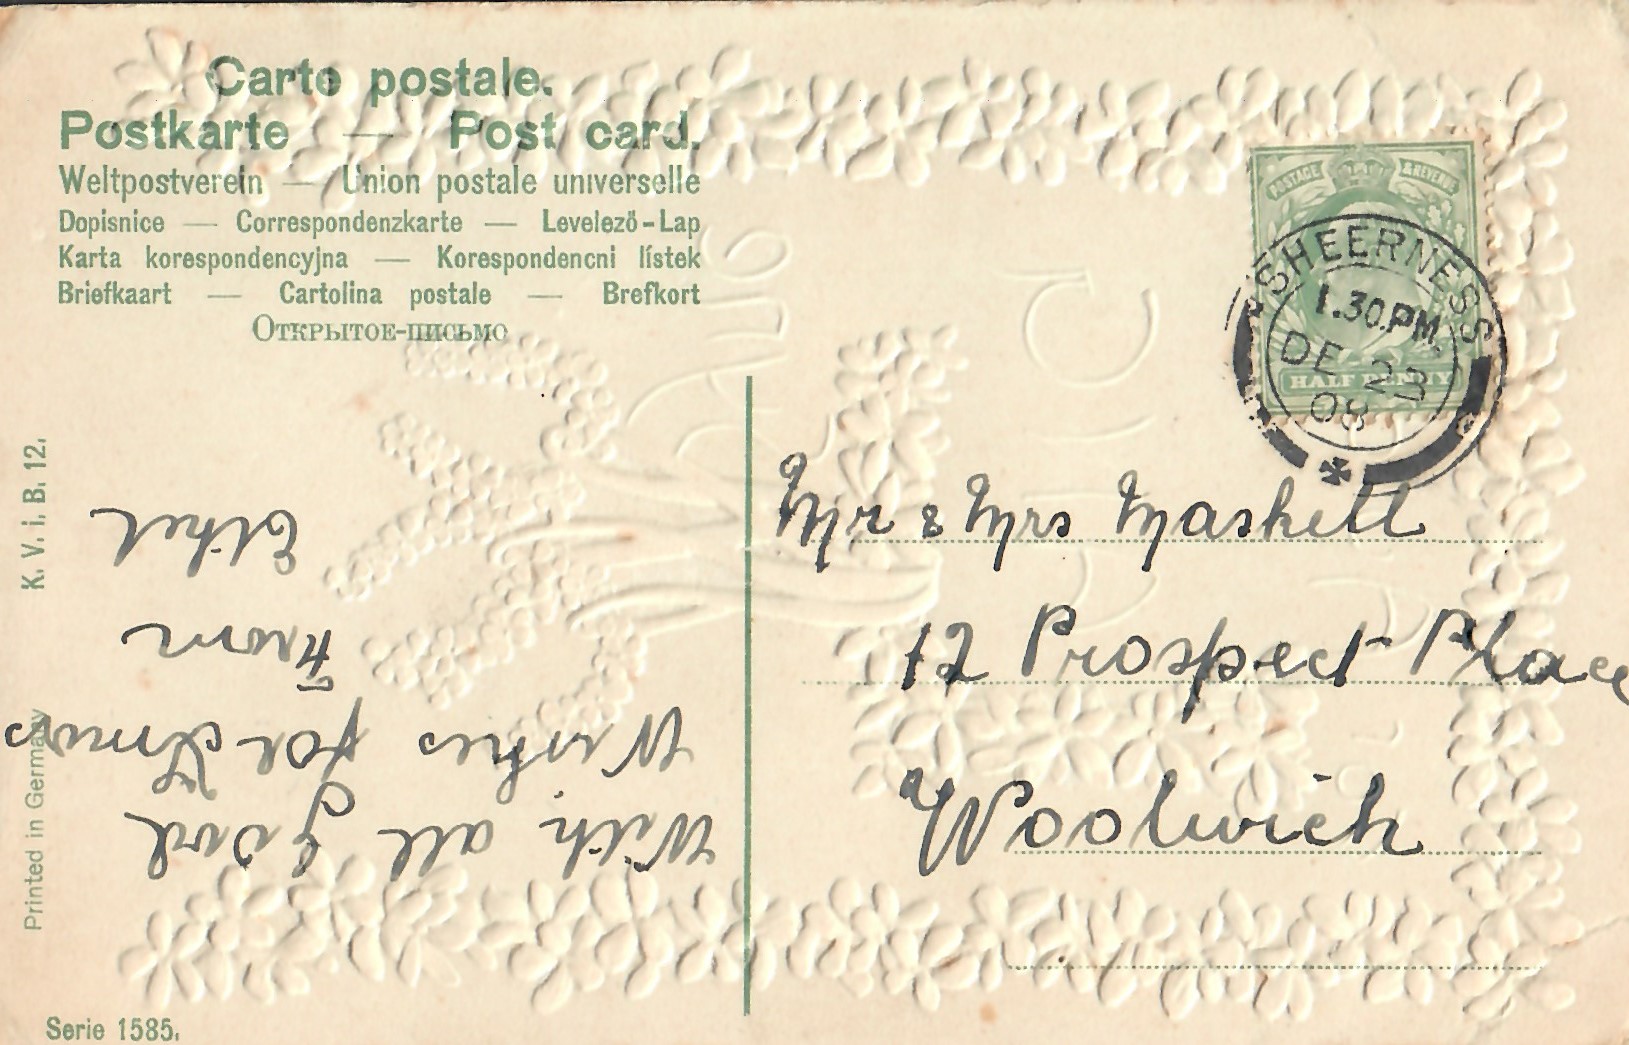 Carte postale.
Postkarte — Post card.
Weltpostverein — Union postale universelle
Dopisnice — Correspondenzkarte — Levelező-Lap
Karta korespondencyjna — Korespondencni lístek
Briefkaart — Cartolina postale — Brefkort
Открытое-письмо
POSTAGE & REVENUE
HALF PENNY
SHEERNESS
1.30.PM.
DE 23
08
Mr & Mrs Maskell
12 Prospect Place
Woolwich
With all Good
Wishes for Xmas
From
Ethel
K. V. i. B. 12.
Printed in Germany
Serie 1585.